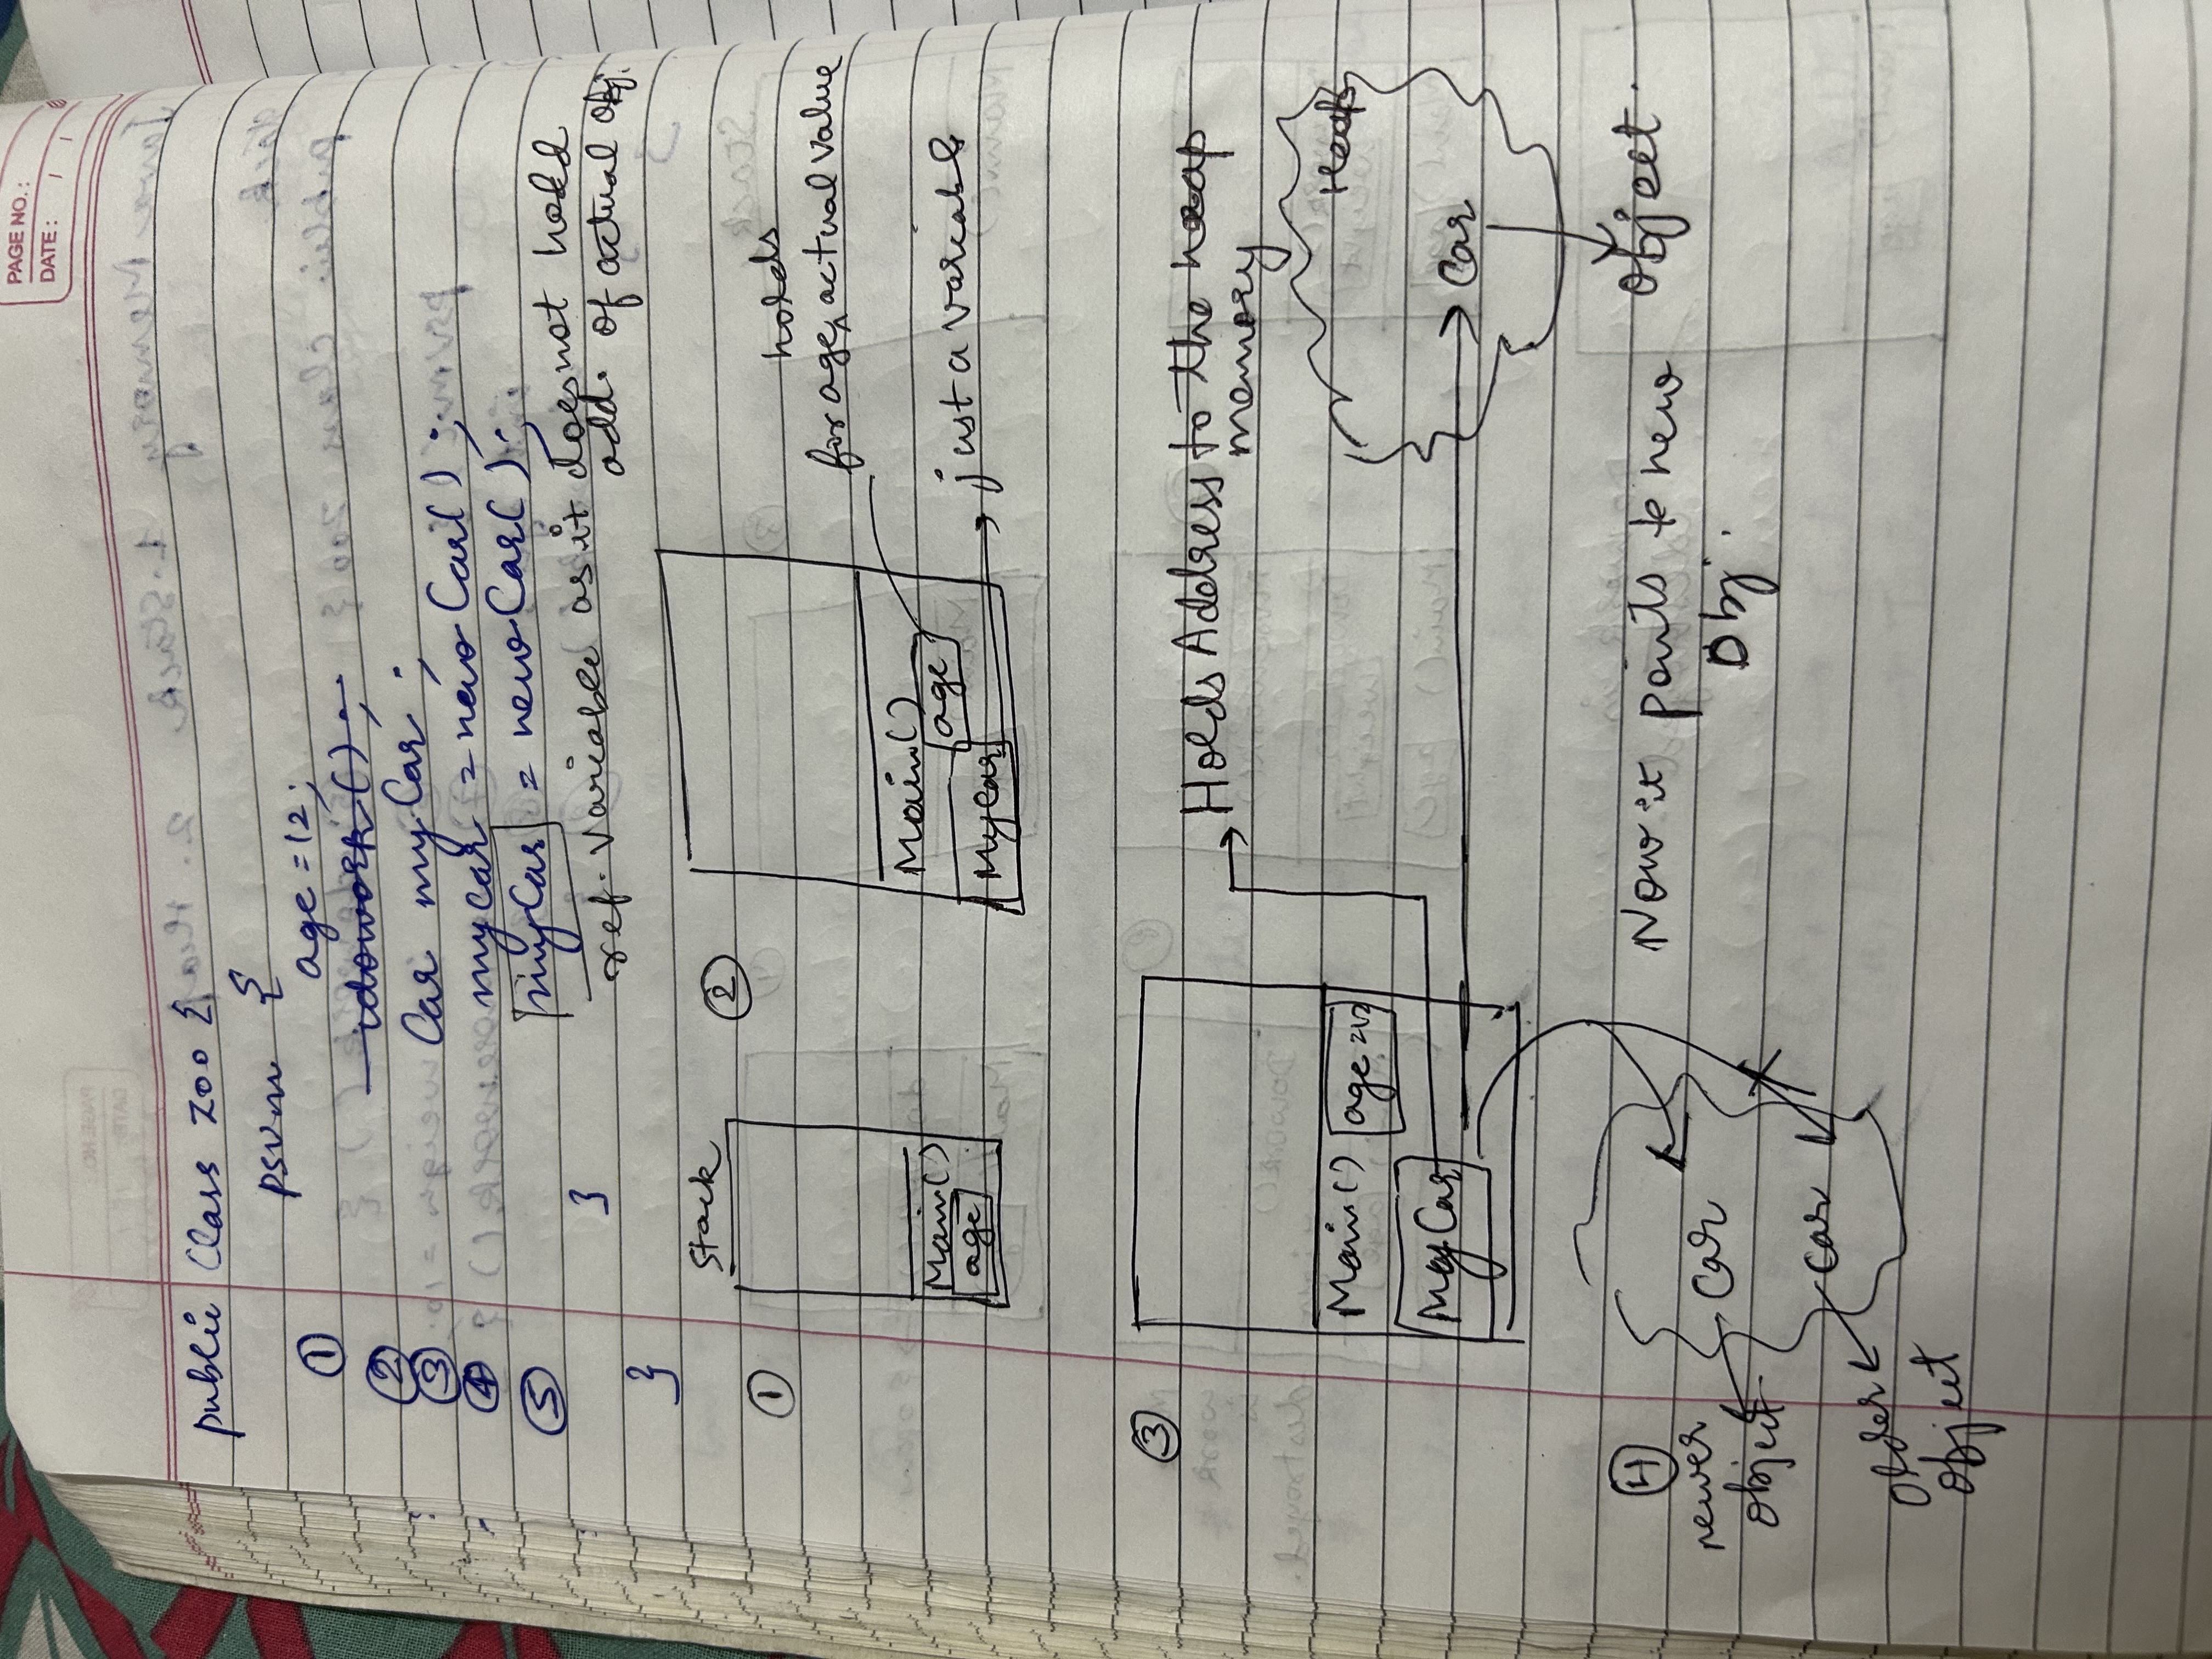 PAGE NO.:
DATE: / /
public Class Zoo {
psvm {
① age = 12;
② idowork();
③ Car myCar;
④ mycar = new Car();
⑤ myCar = new Car();
ref. Variable as it does not hold
add. of actual Obj.
}
}
Stack
①
Main()
age
②
Main()
age
MyCar
holds
for age ^ actual value
just a variable
③
Main() age = 12
MyCar
Holds Address to the heap
memory
Heap
Car
Object.
④
newer
object
Car
Car
Older
object
Now it points to new
Obj.